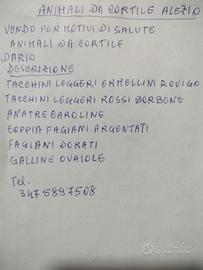 ANIMALI DA CORTILE ALEZIO
VENDO PER MOTIVI DI SALUTE
ANIMALI DA CORTILE
DARIO
DESCRIZIONE
TACCHINI LEGGERI ERMELLINI ROVIGO
TACCHINI LEGGERI ROSSI BORBONE
ANATRE CAROLINE
COPPIA FAGIANI ARGENTATI
FAGIANI DORATI
GALLINE OVAIOLE
Tel.
3475897508
subito